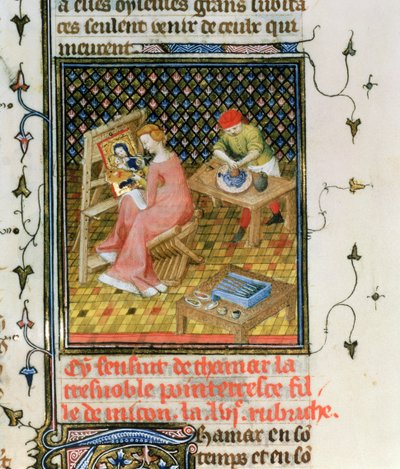 a elles grans subita
ces seulent venir de ceulx qui
meurent
Cy sensuit de thamar la
tresnoble pointerresse fil
le de micon. la .lvi.e rubriche.
Thamar en so
temps et en so